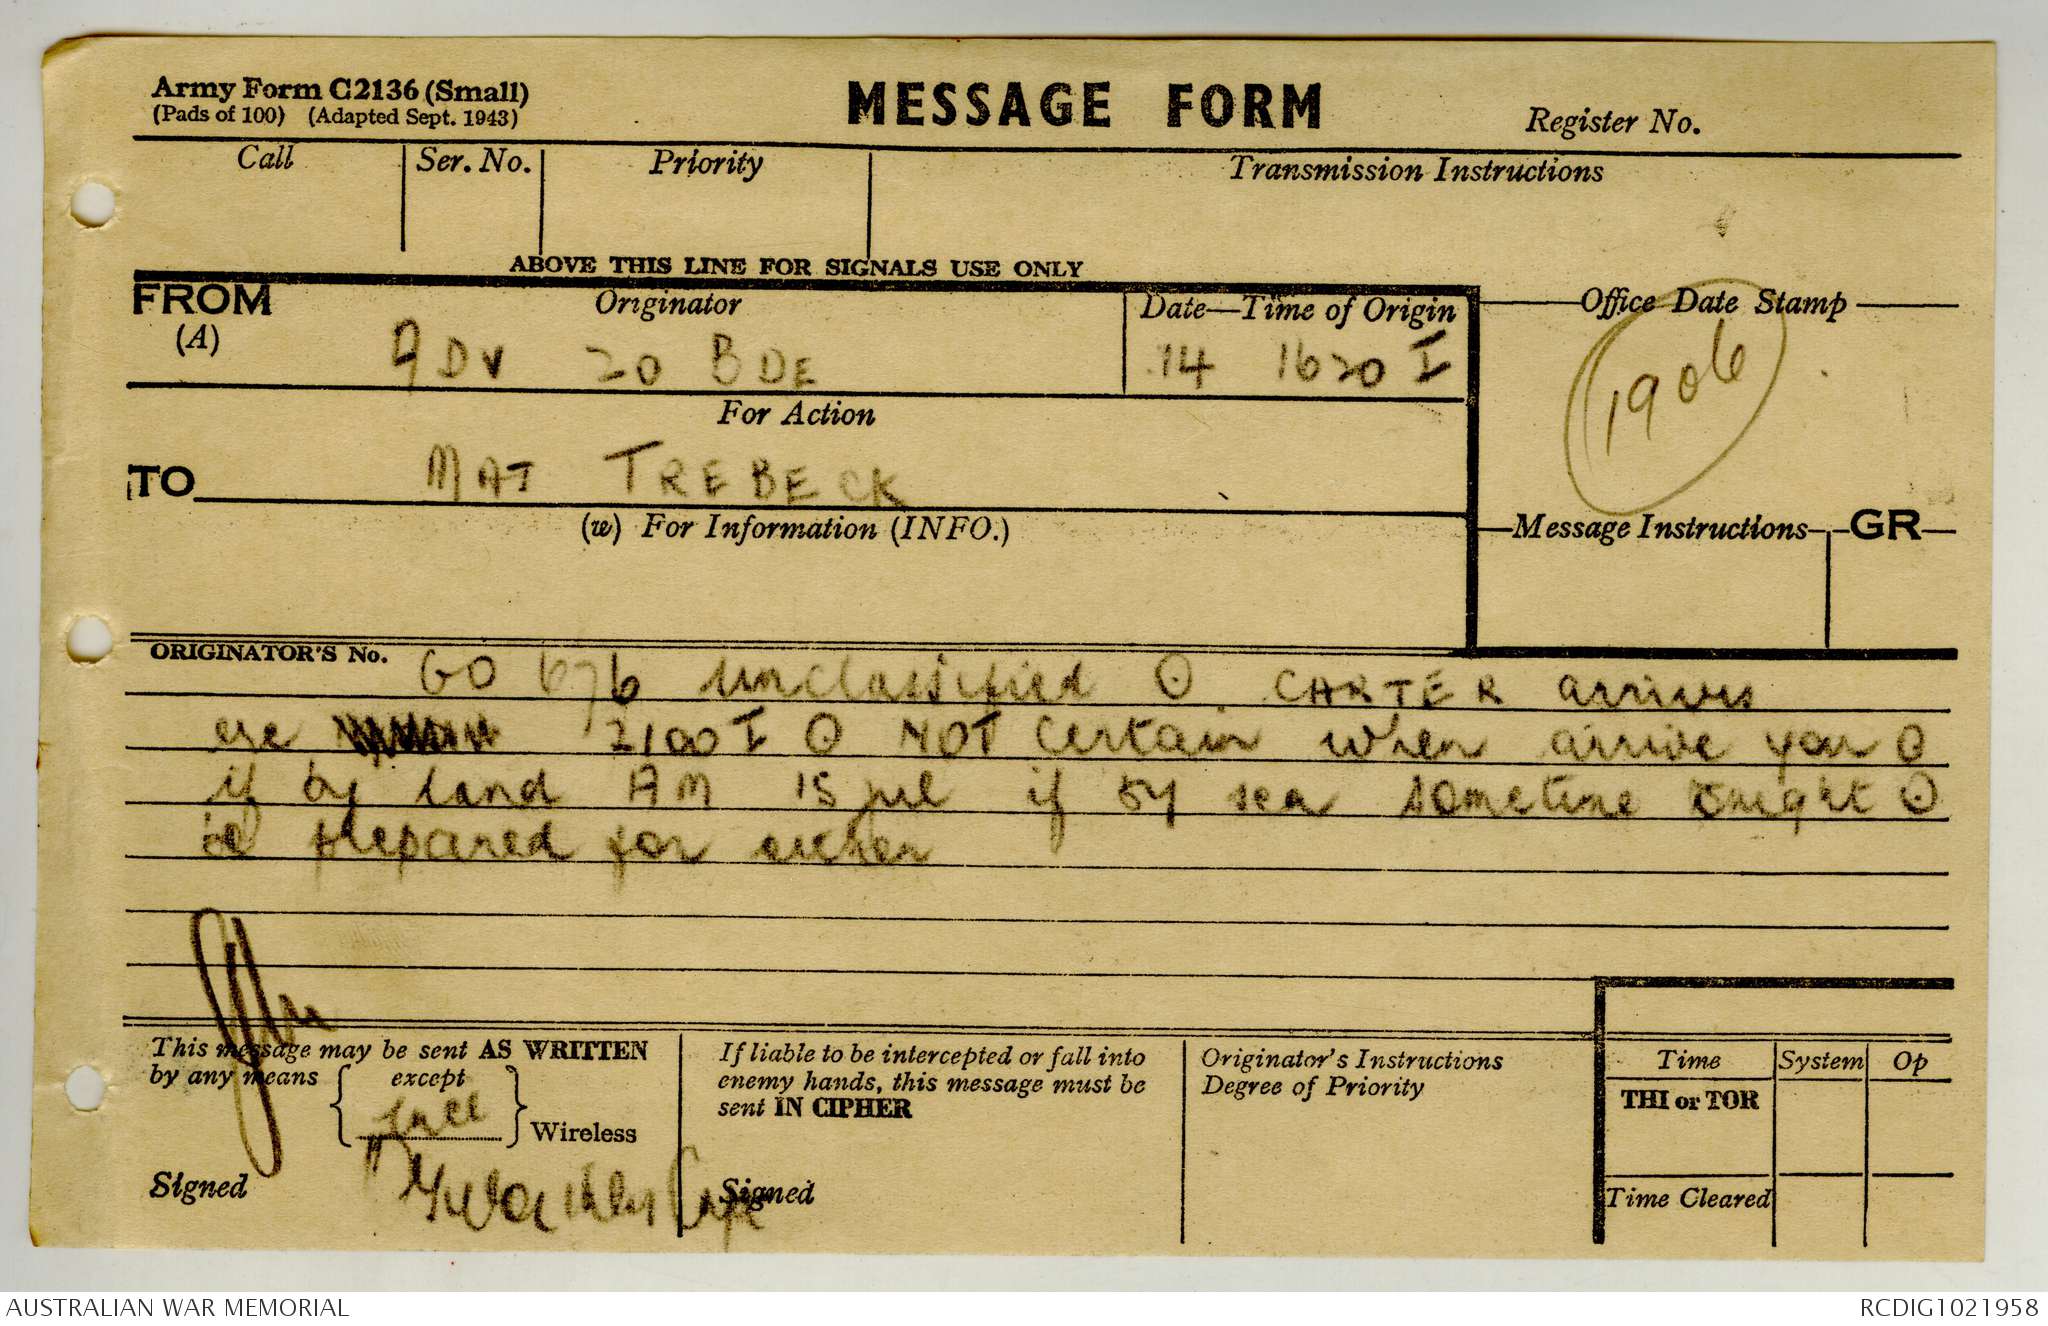 Army Form C2136 (Small)
(Pads of 100) (Adapted Sept. 1943)
MESSAGE FORM
Register No.
Call
Ser. No.
Priority
Transmission Instructions
ABOVE THIS LINE FOR SIGNALS USE ONLY
FROM
(A)
Originator
Date—Time of Origin
Office Date Stamp
ADV 20 BDE
14 1620 I
1906
For Action
TO
MAT TREBECK
(w) For Information (INFO.)
Message Instructions
GR
ORIGINATOR'S No.
GO 676 unclassified ⊙ CARTER arrives
2100 I ⊙ NOT certain when arrive your ⊙
if by land AM 15 jul if by sea sometime tonight ⊙
be prepared for either
This message may be sent AS WRITTEN
by any means
except
Wireless
Signed
If liable to be intercepted or fall into
enemy hands, this message must be
sent IN CIPHER
Signed
Originator's Instructions
Degree of Priority
Time
System
Op
THI or TOR
Time Cleared
AUSTRALIAN WAR MEMORIAL
RCDIG1021958